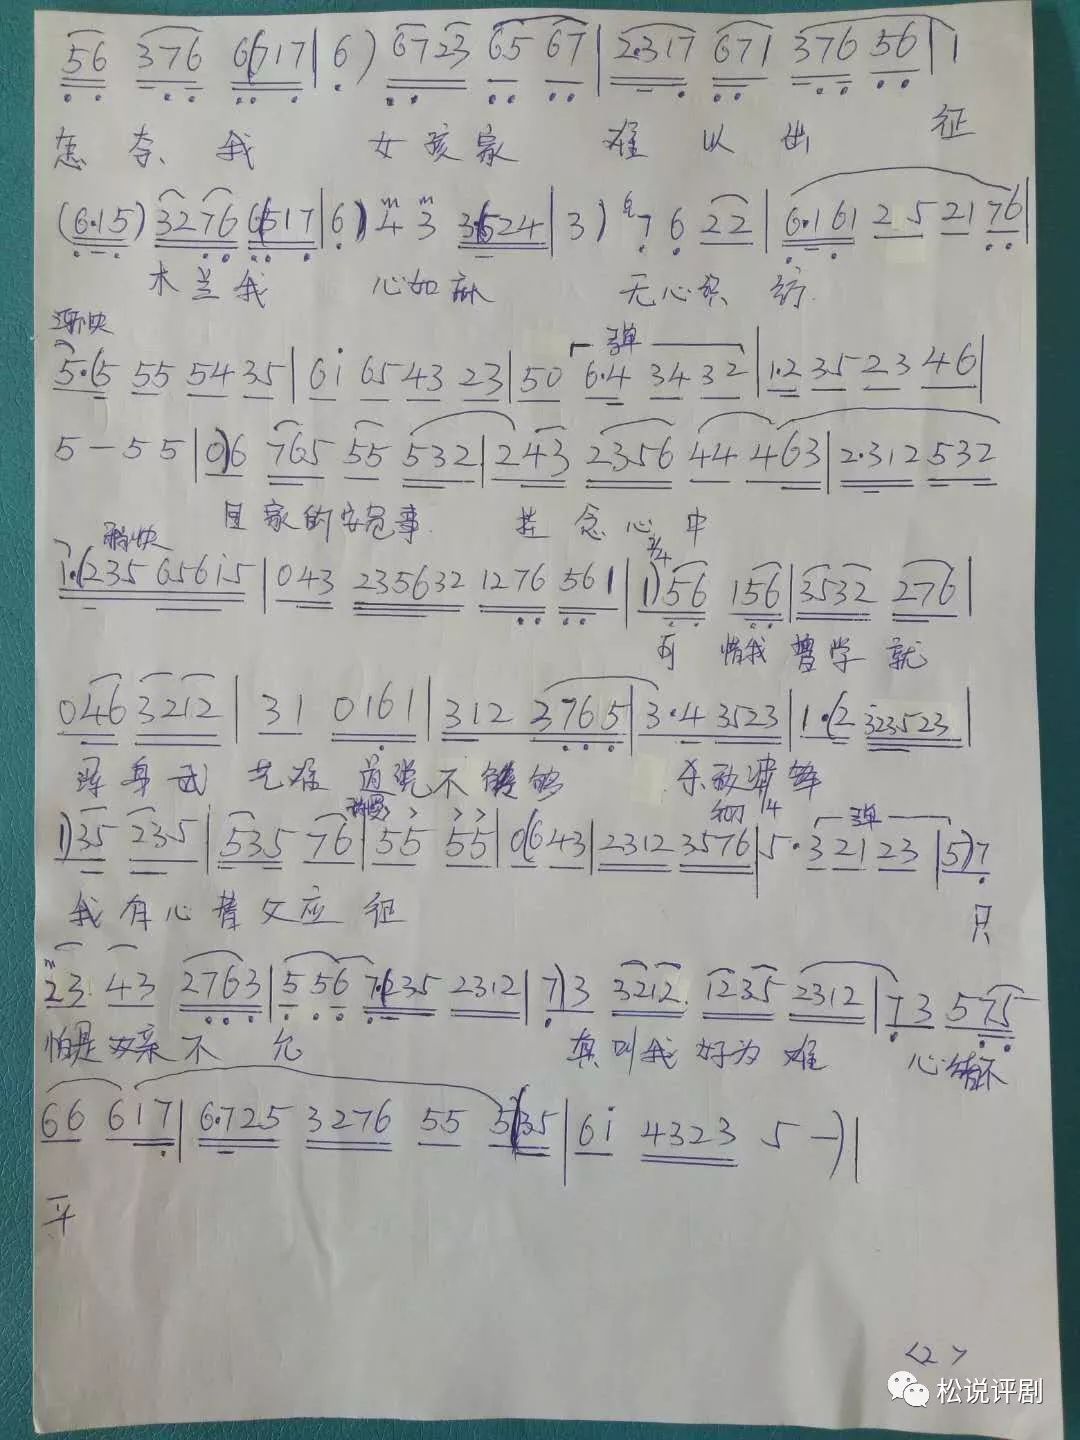 56 376 6(617|6) 6723 65 67|2·317 671 376 56|1
怎奈我 女孩家 难以出征
(6·15) 3276 6(517|6) 4 3 3(524|3) 7 6 22|6·161 25 21 76|
木兰我 心如麻 无心织纺
渐快
弹
5·(5 55 54 35|6i 65 43 23|50 6·4 34 32|1·2 35 23 46|
5-55|0)6 765 55 532|243 2356 44 463|2·312 532
国家的安危事 挂念心中
稍快
2/4
1·(235 65615|043 235632 1276 561|1)56 156|3532 276|
可惜我 曾学就
046 3212|31 0161|312 3765|3·4 3523|1·(2 323523|
浑身武艺 不能够 杀敌
稍慢
4
弹
1)35 235|535 76|55 55|0(643|2312 3576|5·3 21 23|5)7
我有心替父应征 只
23 43 2763|556 7·(235 2312|7)3 3212 1235 2312|73 575
怕是父亲不允 真叫我好为难 心绪不
66 617|6·725 3276 55 5(35|6i 4323 5-)|
平
<2>
松说评剧